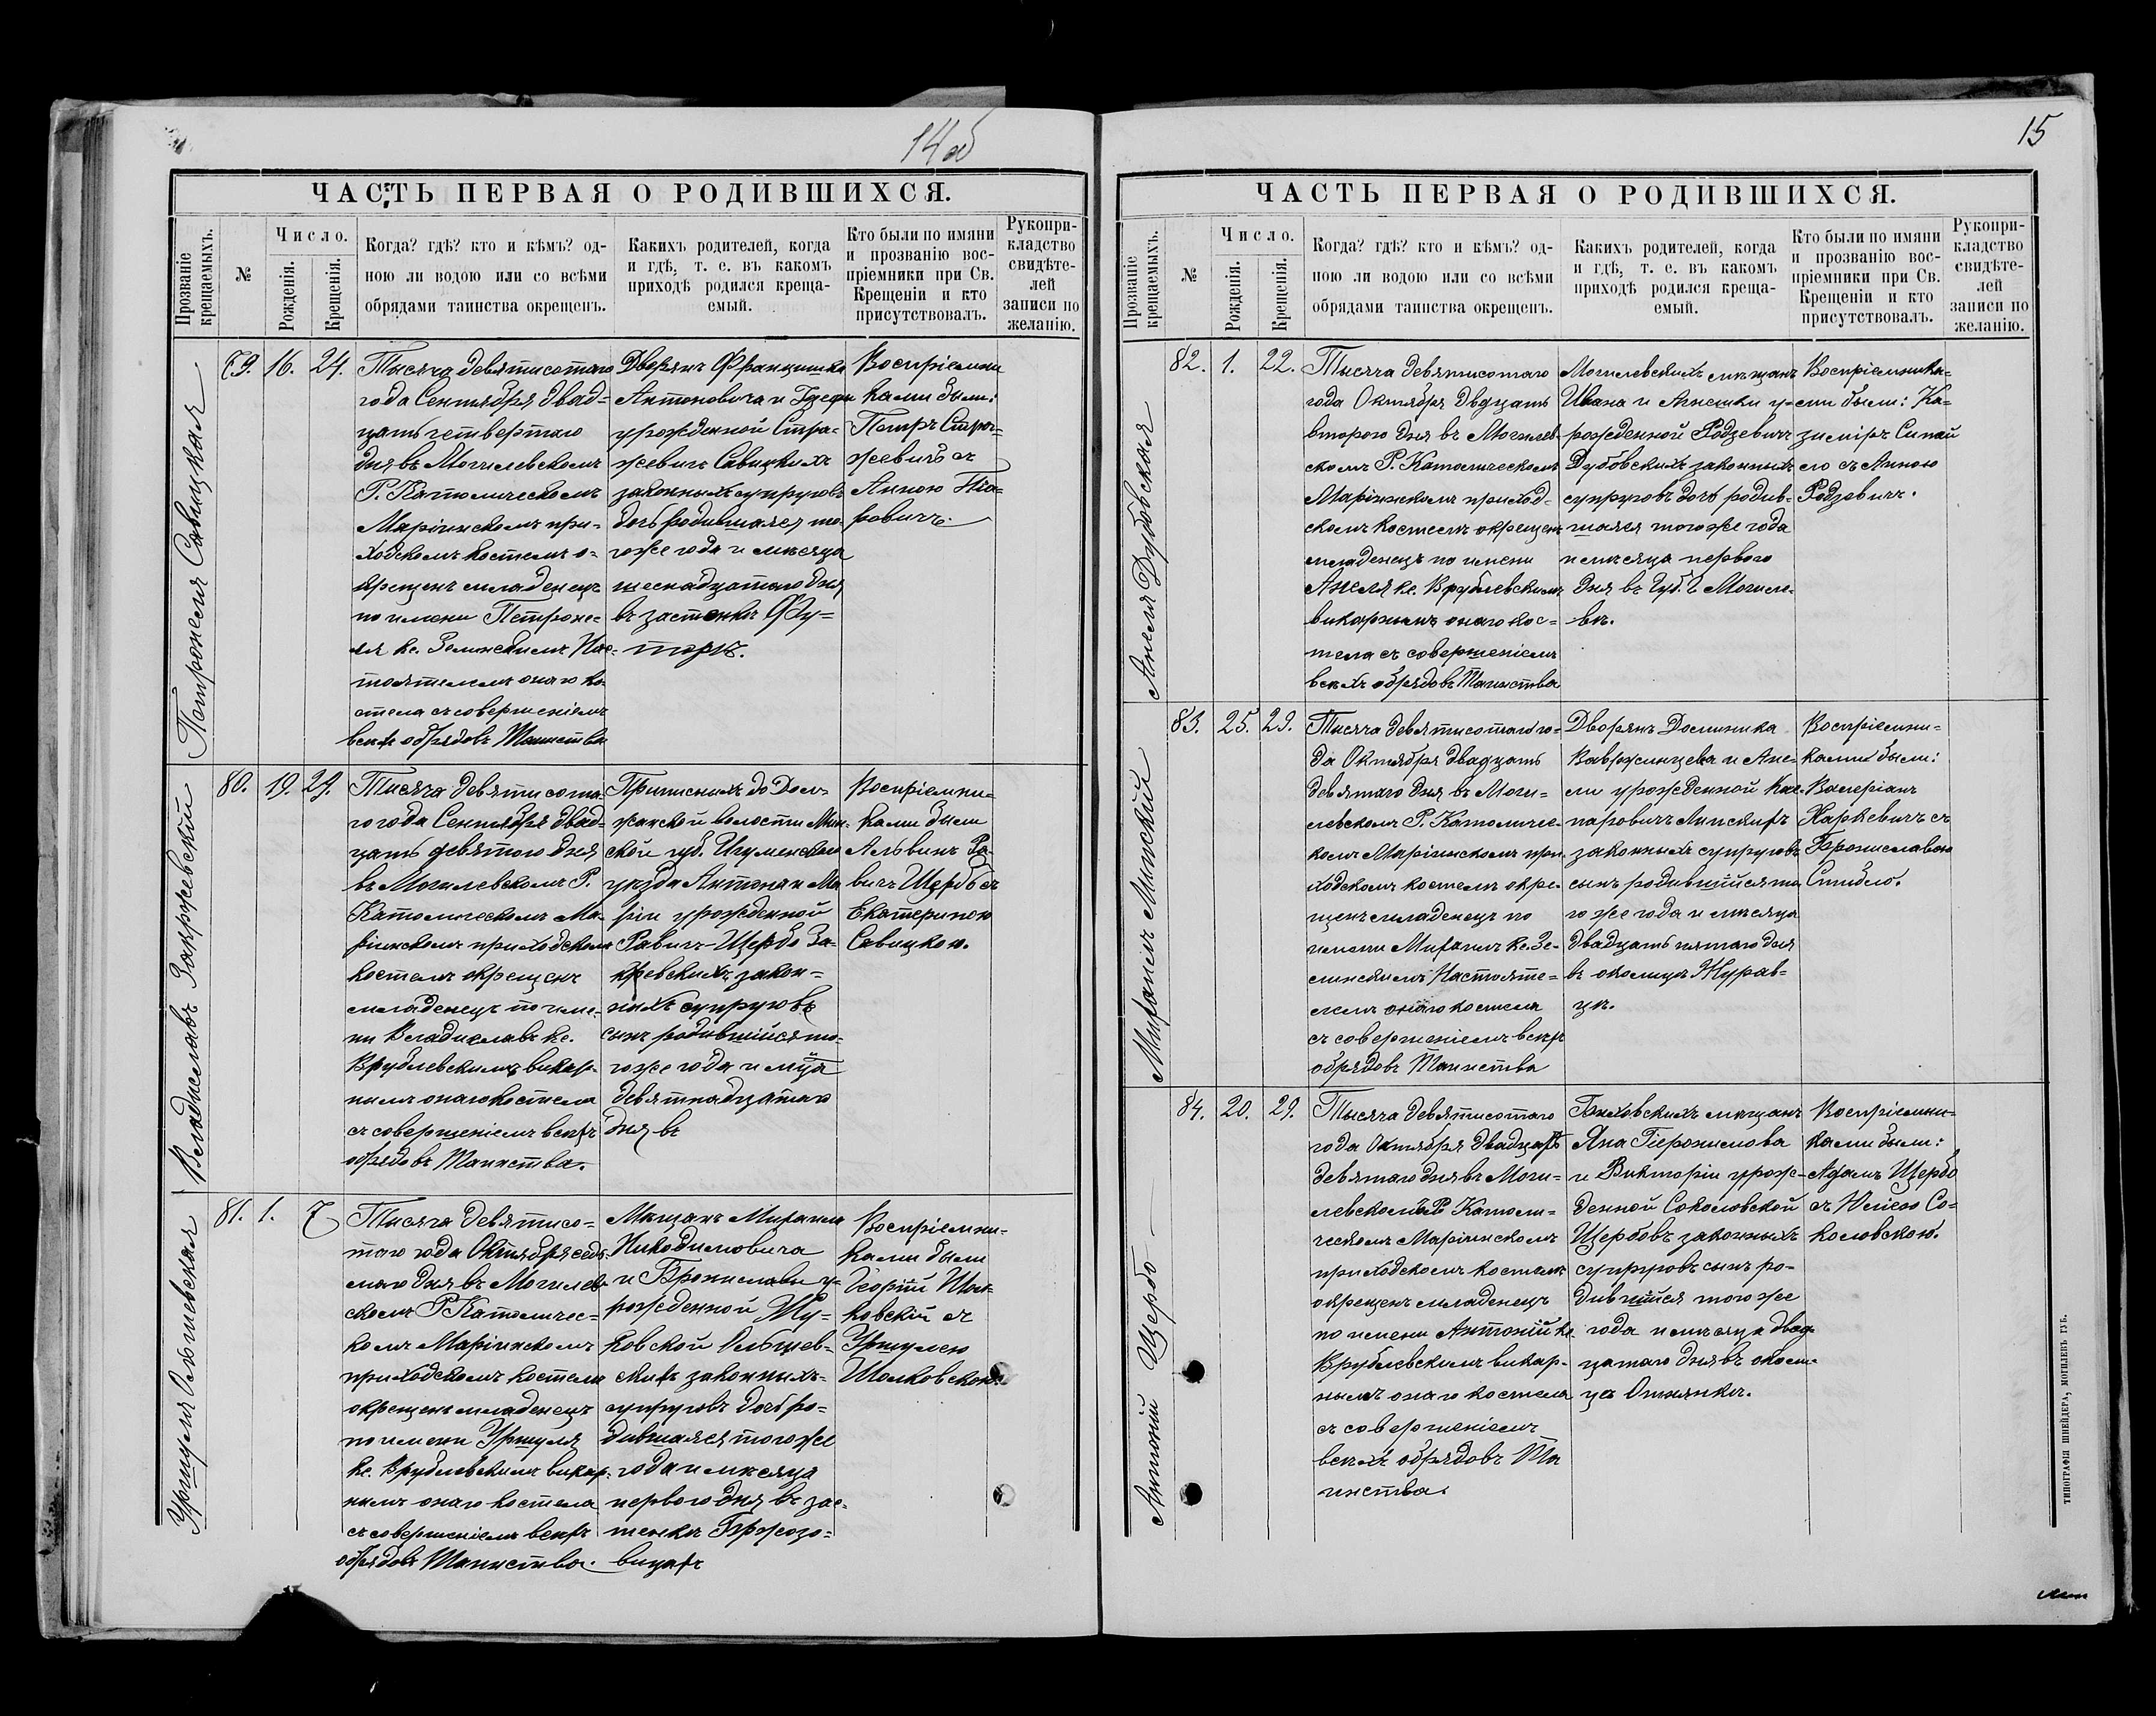 14об
ЧАСТЬ ПЕРВАЯ О РОДИВШИХСЯ.
Прозваніе крещаемыхъ.
№
Число.
Рожденія.
Крещенія.
Когда? гдѣ? кто и кѣмъ? од-
ною ли водою или со всѣми
обрядами таинства окрещенъ.
Какихъ родителей, когда
и гдѣ, т. е. въ какомъ
приходѣ родился креща-
емый.
Кто были по имяни
и прозванію вос-
пріемники при Св.
Крещеніи и кто
присутствовалъ.
Рукопри-
кладство
свидѣте-
лей
записи по
желанію.
Петронеля Савицкая
79. 16. 24.
Тысяча девятисотаго
года Сентября двад=
цать четвертаго
дня въ Могилевскомъ
Р. Католическомъ
Маріинскомъ при-
ходскомъ костелѣ о-
крещенъ младенецъ
по имени Петроне-
ля кс. Зелинскимъ Нас-
тоятелемъ онаго ко-
стела съ совершеніемъ
всѣхъ обрядовъ Таинства
Дворянъ Францишка
Антоновича и Іозефы
урожденной Стра-
жевичъ Савицкихъ
законныхъ супруговъ
дочь родившаяся то-
гоже года и мѣсяца
шеснадцатаго дня
въ застенкѣ Фу=
торѣ.
Воспріемни
ками были:
Петръ Стра-
жевичъ съ
Анною
ровичъ.
Владиславъ Закржевскій
80. 19. 29.
Тысяча девятисота-
го года Сентября двад-
цать девятого дня
въ Могилевскомъ Р.
Католическомъ Ма-
ріинскомъ приходскомъ
костелѣ окрещенъ
младенецъ по име-
ни Владиславъ кс.
Врублевскимъ викар-
нымъ онаго костела
съ совершеніемъ всѣхъ
обрядовъ Таинства.
Приписныхъ до Дол-
жанской волости Мин-
ской губ. Игуменскаго
уѣзда Антона и Ма
ріи урожденной
Равичъ-Щербо За-
кревскихъ закон-
ныхъ супруговъ
сынъ родившійся то-
гоже года и мца
девятнадцатаго
дня въ
Воспріемни-
ками были
Альвинъ Ра-
вичъ Щербо съ
Екатериною
Савицкою.
Уршуля Ольшевская
81. 1. 7
Тысяча девятисо-
таго года Октября седь-
маго дня въ Могилев-
скомъ Р Католичес-
комъ Маріинскомъ
приходскомъ костелѣ
окрещенъ младенецъ
по имени Уршуля
кс. Врублевскимъ викар-
нымъ онаго костела
съ совершеніемъ всѣхъ
обрядовъ Таинства.
Мѣщанъ Михаила
Никодимовича
и Брониславы у-
рожденной Жу-
ковской Ольшев-
скихъ законныхъ
супруговъ дочь ро-
дившаяся того же
года и мѣсяца
перваго дня въ зас-
тенкѣ Бржозо-
вицахъ
Воспріемни-
ками были
Георгій Шол-
ковскій съ
Уршулею
Шолковскою.
15
ЧАСТЬ ПЕРВАЯ О РОДИВШИХСЯ.
Прозваніе крещаемыхъ.
№
Число.
Рожденія.
Крещенія.
Когда? гдѣ? кто и кѣмъ? од-
ною ли водою или со всѣми
обрядами таинства окрещенъ.
Какихъ родителей, когда
и гдѣ, т. е. въ какомъ
приходѣ родился креща-
емый.
Кто были по имяни
и прозванію вос-
пріемники при Св.
Крещеніи и кто
присутствовалъ.
Рукопри-
кладство
свидѣте-
лей
записи по
желанію.
Анеля Дубовская
82. 1. 22.
Тысяча девятисотаго
года Октября двадцать
второго дня въ Могилев-
скомъ Р. Католическомъ
Маріинскомъ приход-
скомъ костелѣ окрещенъ
младенецъ по имени
Анеля кс. Врублевскимъ
викарнымъ онаго кос-
тела съ совершеніемъ
всѣхъ обрядовъ Таинства
Могилевскихъ мѣщанъ
Ивана и Агнешки у-
рожденной Родзевичъ
Дубовскихъ законныхъ
супруговъ дочь родив-
шаяся того же года
и мѣсяца перваго
дня въ Губ. г. Могиле-
вѣ.
Воспріемника-
ми были: Ка-
зиміръ
съ Анною
Родзевичъ.
Михаилъ Липскій
83. 25. 29.
Тысяча девятисотаго го-
да Октября двадцать
девятаго дня въ Моги-
левскомъ Р. Католичес-
комъ Маріинскомъ при-
ходскомъ костелѣ окре-
щенъ младенецъ по
имени Михаилъ кс. Зе-
линскимъ Настояте-
лемъ онаго костела
съ совершеніемъ всѣхъ
обрядовъ Таинства
Дворянъ Доминика
Вавржинцева и Ане-
ли урожденной Кас-
паровичъ Липскихъ
законныхъ супруговъ
сынъ родившійся то-
го же года и мѣсяца
двадцать пятаго дня
въ околицѣ Журав-
цѣ.
Воспріемни-
ками были:
Валеріанъ
Харкевичъ съ
Брониславою
Стибло.
Антоній Щербо
84. 20. 29.
Тысяча девятисотаго
года Октября двадцать
девятаго дня въ Моги-
левскомъ Р Католи-
ческомъ Маріинскомъ
приходскомъ костелѣ
окрещенъ младенецъ
по имени Антоній кс.
Врублевскимъ викар-
нымъ онаго костела
съ совершеніемъ
всѣхъ обрядовъ Та
инства.
Быховскихъ мѣщанъ
Яна Іеронимова
и Викторіи урож-
денной Соколовской
Щербовъ законныхъ
супруговъ сынъ ро-
дившійся того же
года и мѣсяца двад-
цатаго дня въ околи-
цѣ Отнянкѣ.
Воспріемни-
ками были:
Адамъ Щербо
съ Юліею Со-
коловскою.
ТИПОГРАФІЯ ШНЕЙДЕРА, МОГИЛЕВЪ ГУБ.